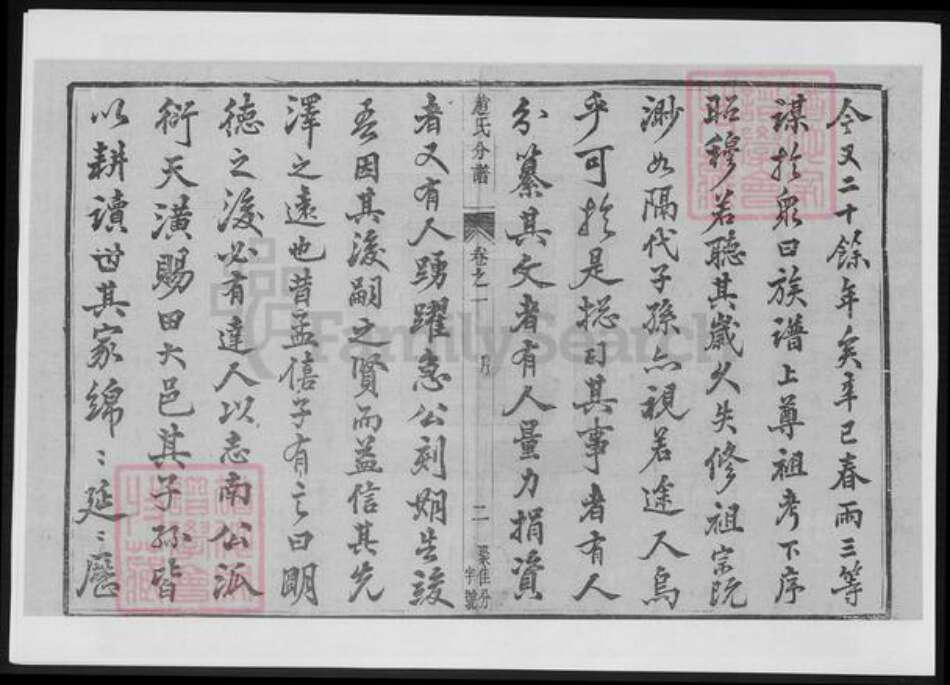 今又二十餘年矣辛巳春雨三等
謀於衆曰族譜上尊祖考下序
昭穆若聽其歲久失修祖宗既
渺如隔代子孫亦視若途人烏
乎可於是總司其事者有人
分纂其文者有人量力捐資
趙氏分譜 卷之一 二
者又有人踴躍急公刻期告竣
吾因其後嗣之賢而益信其先
澤之遠也昔孟僖子有言曰明
德之後必有達人以志南公派
衍天潢賜田大邑其子孫皆
以耕讀世其家綿〻延〻歷
FamilySearch